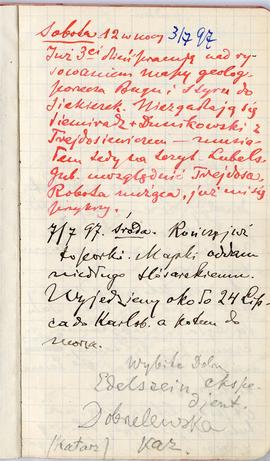 Sobota 12 w nocy 3/7 97
Już 3ci dzień pracuję nad ry-
sowaniem mapy geolog.
porzecza Bugu i Styru do
Siekierek. Niezgadzają się
Siemiradz. + Dunikowski z
Trejdosiewiczem — musia-
łem tedy na teryt. Lubels.
gub. uwzględnić Trejdosa.
Robota nużąca, już mi się
przykrzy.
7/7 97. środa. Kończę już
Toporki. Mapki oddam
niedługo Ślósarskiemu.
Wyjedziemy około 24 Lip-
ca do Karlsb. a potem do
morza.
Wybita Dolna
Edelszein ekspe-
djent.
Dobrzelewska
(Katarz) Kaz.